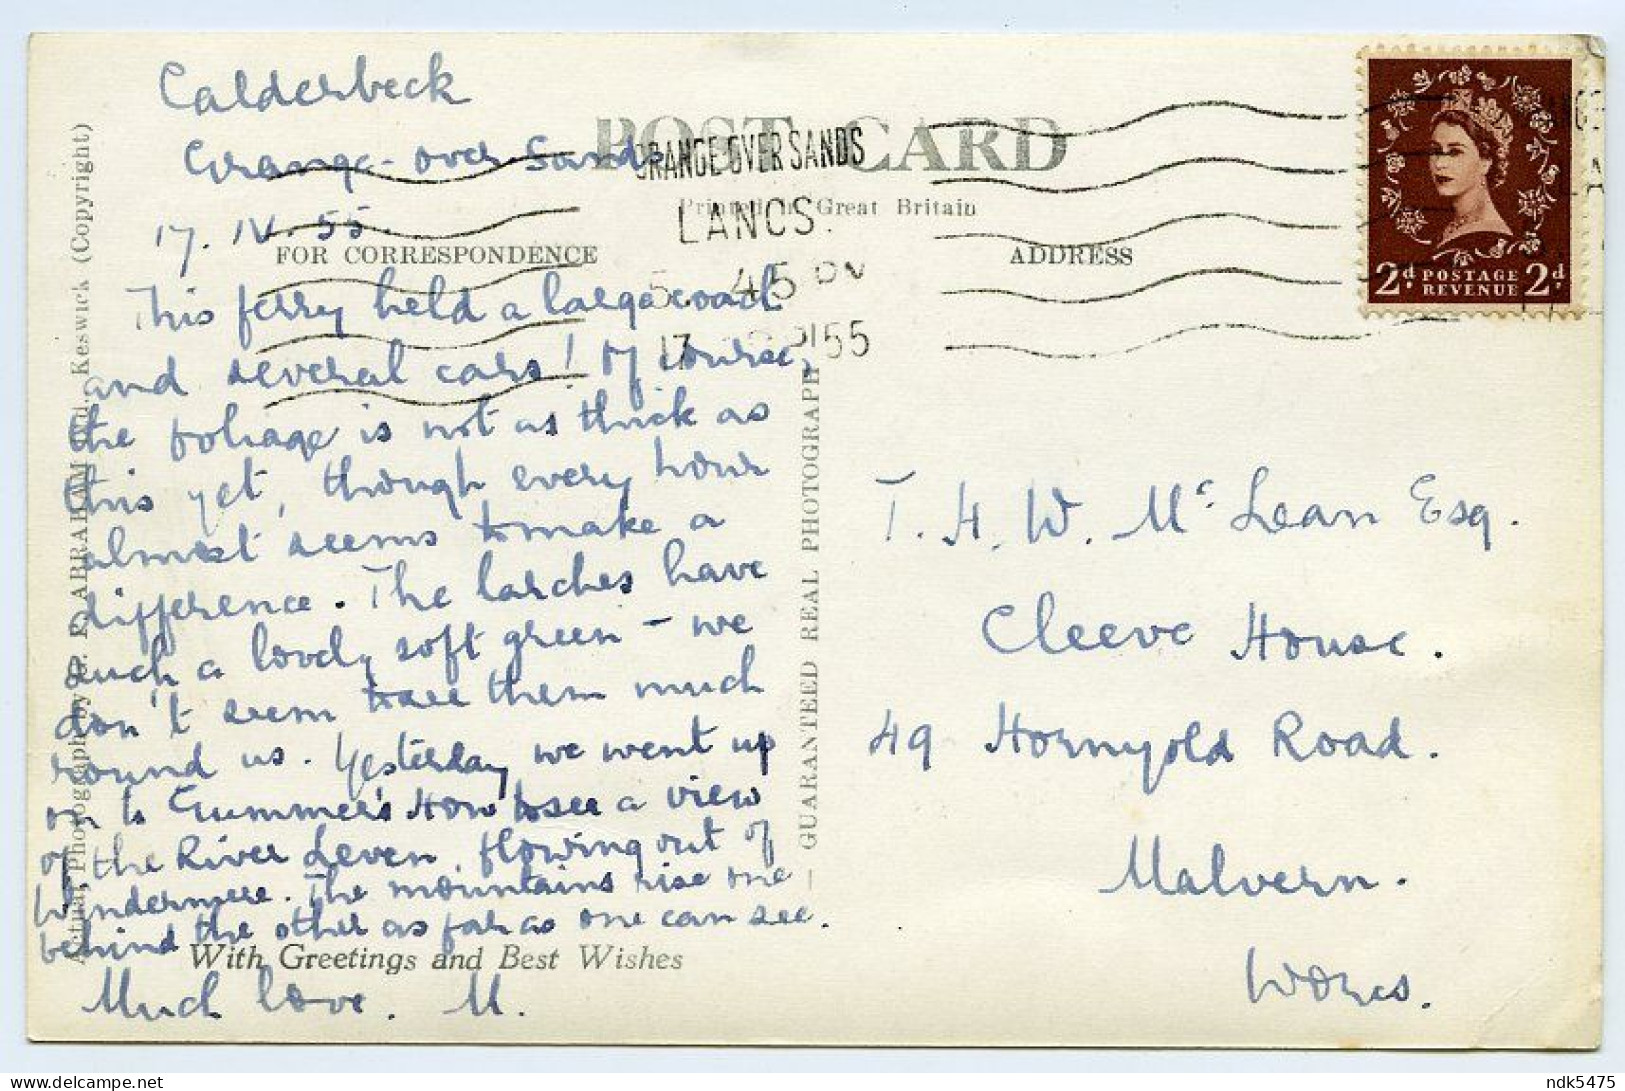 Calderbeck
Grange-over-Sands
17. IV. 55.
POST CARD
Printed in Great Britain
FOR CORRESPONDENCE
ADDRESS
GRANGE OVER SANDS
LANCS.
5 45 PM
17 55
2d POSTAGE 2d
REVENUE
This ferry held a large coach
and several cars! Of course,
the foliage is not as thick as
this yet, though every hour
almost seems to make a
difference. The larches have
such a lovely soft green – we
don't seem to see them much
round us. Yesterday we went up
on to Gummer's How to see a view
of the River Leven, flowing out of
Windermere. The mountains rise one
behind the other as far as one can see.
Much love. M.
With Greetings and Best Wishes
Actual Photograph by G. P. ABRAHAM Ltd. Keswick (Copyright)
— GUARANTEED REAL PHOTOGRAPH
T. H. W. McLean Esq.
Cleeve House.
49 Hornyold Road.
Malvern.
Worcs.
ndk5475